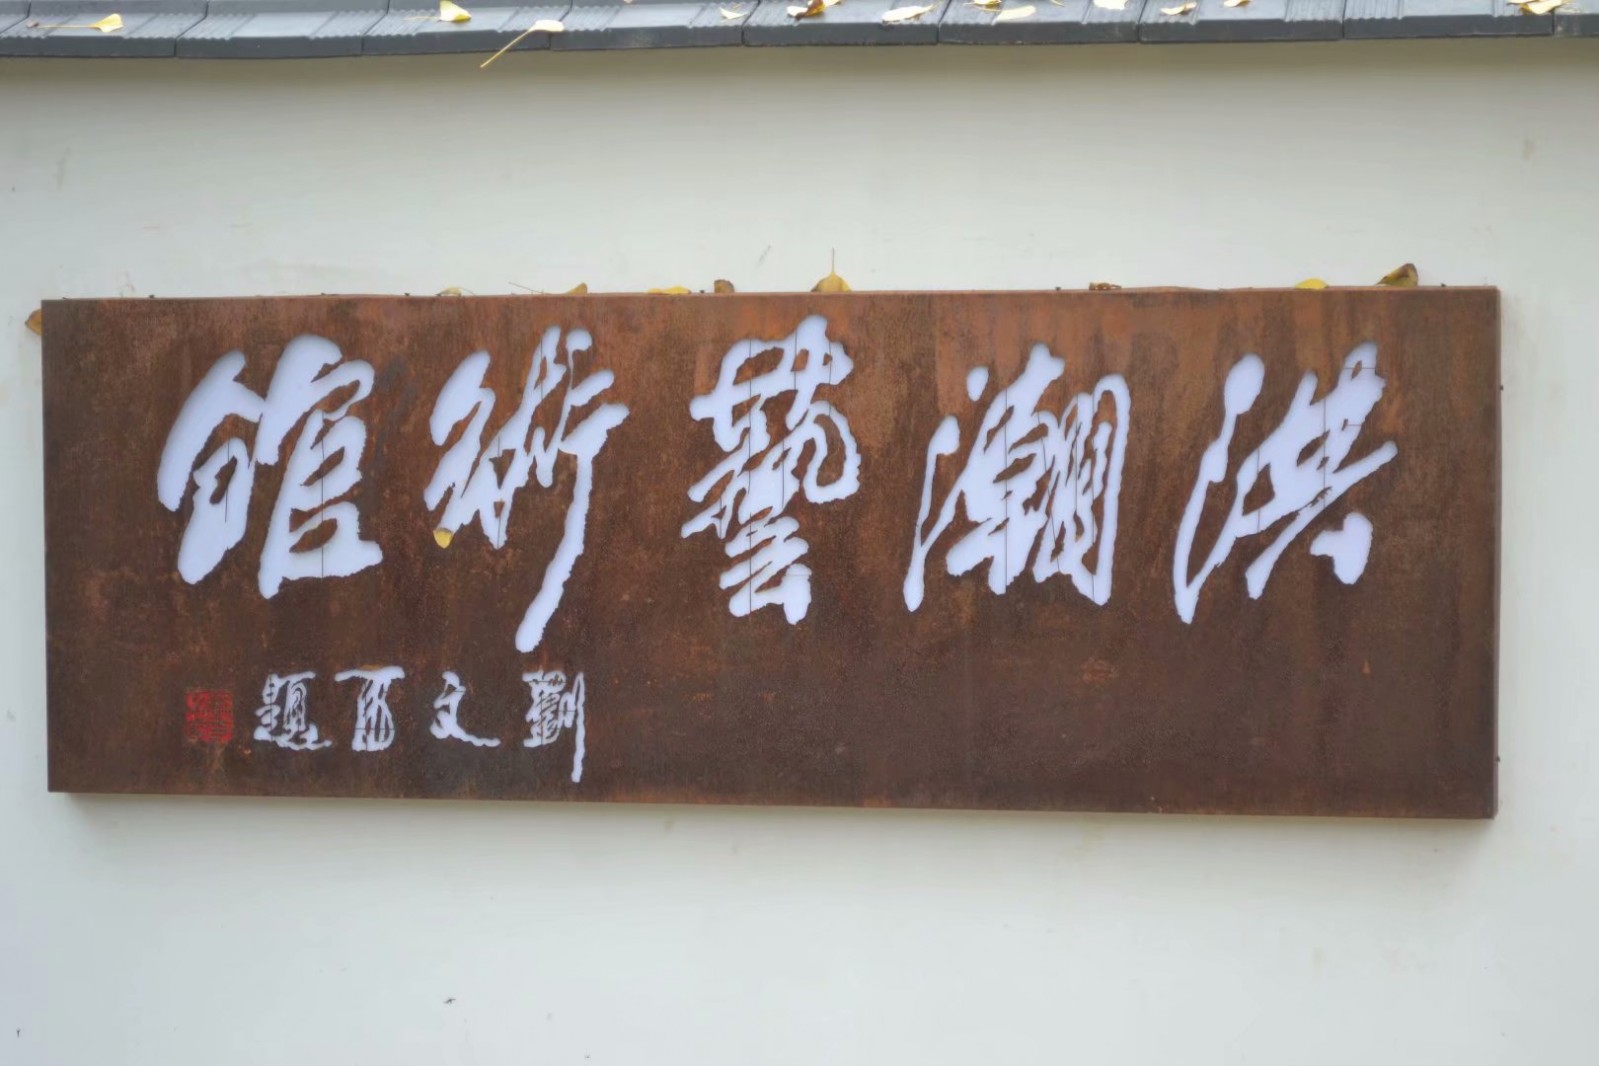 洪潮藝術館
劉文西題